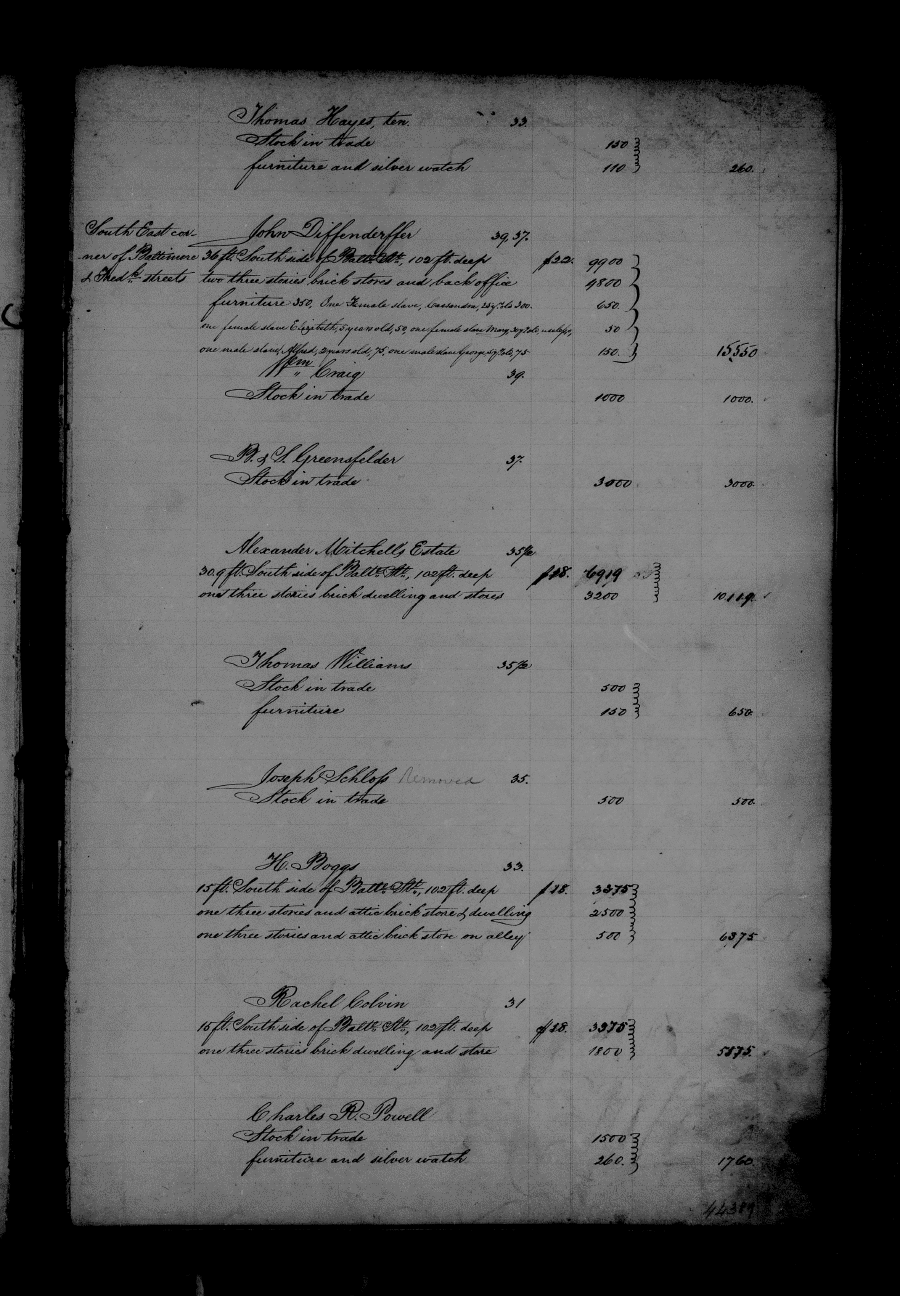 Thomas Hayes, ten. 33.
Stock in trade 150
furniture and silver watch 110 260.
South East cor- John Diffenderffer 39, 37.
ner of Baltimore 36 ft. South side of Balte. St., 102 ft. deep 9900
& Fredk. streets two three stories brick stores and back office 4800
furniture 350, One Female slave, Cassandra, 25 yrs. old 300. 650.
one female slave Elizabeth, 5 years old, 50, one female slave Mary 50
one male slave, Alfred, 2 years old, 75, one male slave George 75 150. 15550
" Craig 39.
Stock in trade 1000 1000.
B. & S. Greensfelder 37.
Stock in trade 3000 3000.
Alexander Mitchell's Estate 35 1/2
30.9 ft. South side of Balte. St., 102 ft. deep 6919
one three stories brick dwelling and stores 3200 10119.
Thomas Williams 35 1/2
Stock in trade 500
furniture 150 650.
Joseph Schloss Removed 35.
Stock in trade 500 500
H. Boggs 33.
15 ft. South side of Balte. St., 102 ft. deep 3375
one three stories and attic brick store & dwelling 2500
one three stories and attic brick store on alley 500 6375
Rachel Colvin 31
15 ft. South side of Balte. St., 102 ft. deep 3375
one three stories brick dwelling and store 1800 5175.
Charles R. Powell
Stock in trade 1500
furniture and silver watch 260. 1760.
44389